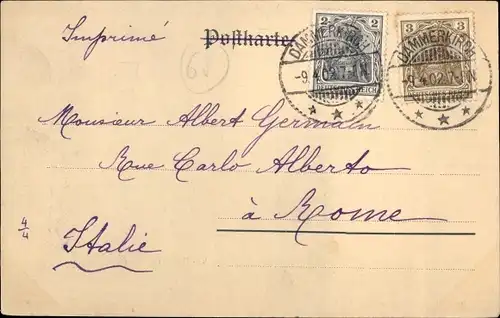 Imprimé
Postkarte
60
2
3
DAMMERKIRCH
-9.4.02.7-8N
REICH
DAMMERKIRCH
-9.4.02.7-8N
Monsieur Albert Germain
Rue Carlo Alberto
à Rome
4/4
Italie